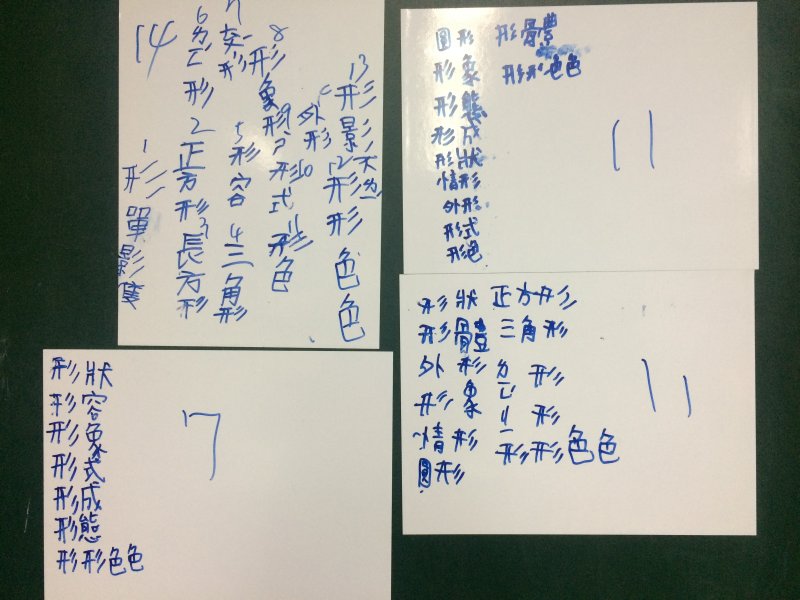 14
1
形單影隻
2
正方形
3
長方形
4
三角形
5
形容
6
ㄉㄧ形
8
形象
9
形式
10
外形
11
形色
12
形形色色
13
形影不
圓形
形象
形態
形成
形狀
情形
外形
形式
形色
形骨豊
形形色色
11
形狀
形容
形象
形式
形成
形態
形形色色
7
形狀
形體
外形
形象
情形
圓形
正方形
三角形
形形色色
11